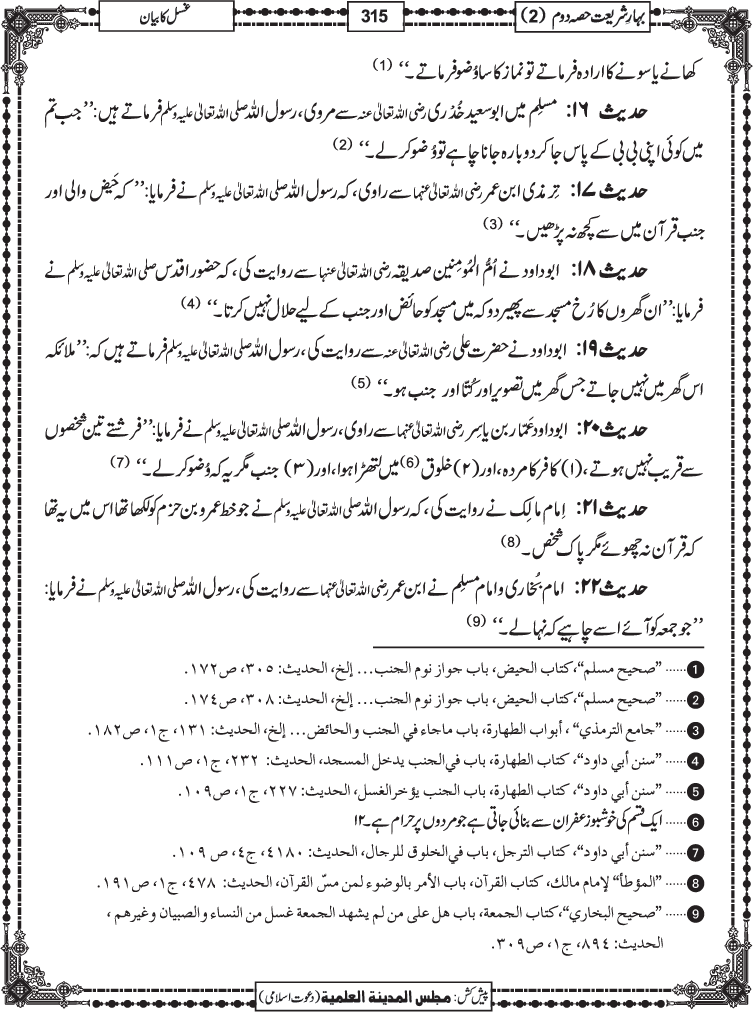 بہارِ شریعت حصہ دوم (2)
315
غسل کا بیان
کھانے یا سونے کا ارادہ فرماتے تو نماز کا سا وُضو فرماتے۔‘‘ (1)
حدیث ۱۶: مسلِم میں ابو سعید خُدْری رضی اللہ تعالیٰ عنہ سے مروی، رسول اللہ صلی اللہ تعالیٰ علیہ وسلم فرماتے ہیں: ’’جب تم
میں کوئی اپنی بی بی کے پاس جا کر دوبارہ جانا چاہے تو وُضو کر لے۔‘‘ (2)
حدیث ۱۷: تِرمذی ابن عمر رضی اللہ تعالیٰ عنہما سے راوی، کہ رسول اللہ صلی اللہ تعالیٰ علیہ وسلم نے فرمایا: ’’کہ حَیض والی اور
جنب قرآن میں سے کچھ نہ پڑھیں۔‘‘ (3)
حدیث ۱۸: ابو داود نے اُمُّ المُومِنین صدیقہ رضی اللہ تعالیٰ عنہا سے روایت کی، کہ حضور اقدس صلی اللہ تعالیٰ علیہ وسلم نے
فرمایا: ’’ان گھروں کا رُخ مسجد سے پھیر دو کہ میں مسجد کو حائض اور جنب کے لیے حلال نہیں کرتا۔‘‘ (4)
حدیث ۱۹: ابو داود نے حضرت علی رضی اللہ تعالیٰ عنہ سے روایت کی، رسول اللہ صلی اللہ تعالیٰ علیہ وسلم فرماتے ہیں کہ: ’’ملائکہ
اس گھر میں نہیں جاتے جس گھر میں تصویر اور کُتّا اور جنب ہو۔‘‘ (5)
حدیث ۲۰: ابو داود عَمّار بن یاسِر رضی اللہ تعالیٰ عنہما سے راوی، رسول اللہ صلی اللہ تعالیٰ علیہ وسلم نے فرمایا: ’’فرشتے تین شخصوں
سے قریب نہیں ہوتے، (۱) کافر کا مردہ، اور (۲) خلوق (6) میں لتھڑا ہوا، اور (۳) جنب مگر یہ کہ وُضو کر لے۔‘‘ (7)
حدیث ۲۱: اِمام مالِک نے روایت کی، کہ رسول اللہ صلی اللہ تعالیٰ علیہ وسلم نے جو خط عمرو بن حزم کو لکھا تھا اس میں یہ تھا
کہ قرآن نہ چھوئے مگر پاک شخص۔ (8)
حدیث ۲۲: امام بُخاری و امام مسلِم نے ابن عمر رضی اللہ تعالیٰ عنہما سے روایت کی، رسول اللہ صلی اللہ تعالیٰ علیہ وسلم نے فرمایا:
’’جو جمعہ کو آئے اسے چاہیے کہ نہا لے۔‘‘ (9)
1 ...... ”صحیح مسلم“، کتاب الحیض، باب جواز نوم الجنب... إلخ، الحدیث: ۳۰۵، ص۱۷۲.
2 ...... ”صحیح مسلم“، کتاب الحیض، باب جواز نوم الجنب... إلخ، الحدیث: ۳۰۸، ص۱۷٤.
3 ...... ”جامع الترمذي“ ، أبواب الطهارة، باب ماجاء في الجنب والحائض... إلخ، الحدیث: ۱۳۱، ج۱، ص۱۸۲.
4 ...... ”سنن أبي داود“، کتاب الطهارة، باب في الجنب یدخل المسجد، الحدیث: ۲۳۲، ج۱، ص۱۱۱.
5 ...... ”سنن أبي داود“، کتاب الطهارة، باب الجنب یؤخر الغسل، الحدیث: ۲۲۷، ج۱، ص۱۰۹.
6 ...... ایک قسم کی خوشبو زعفران سے بنائی جاتی ہے جو مردوں پر حرام ہے۔۱۲
7 ...... ”سنن أبي داود“، کتاب الترجل، باب في الخلوق للرجال، الحدیث: ٤۱۸۰، ج٤، ص ۱۰۹.
8 ...... ”المؤطأ“ لإمام مالك، کتاب القرآن، باب الأمر بالوضوء لمن مسّ القرآن، الحدیث: ٤۷۸، ج۱، ص۱۹۱.
9 ...... ”صحیح البخاري“، کتاب الجمعة، باب هل علی من لم یشهد الجمعة غسل من النساء والصبیان وغیرهم ،
الحدیث: ۸۹٤، ج۱، ص۳۰۹.
پیش کش: مجلس المدینة العلمیة (دعوتِ اسلامی)